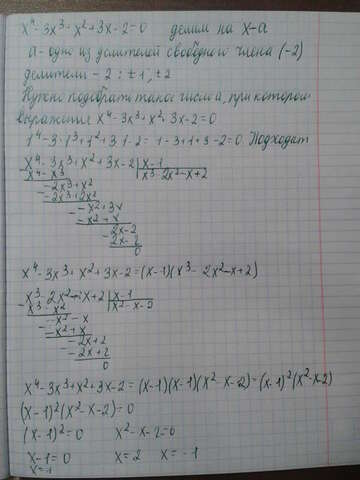 x⁴-3x³+x²+3x-2=0 делим на x-a
a- один из делителей свободного члена (-2)
делители -2: ±1, ±2
Нужно подобрать такое число a, при котором
выражение x⁴-3x³+x²+3x-2=0
1⁴-3·1³+1²+3·1-2=1-3+1+3-2=0. Подходит
x⁴-3x³+x²+3x-2 | x-1
x⁴-x³ | x³-2x²-x+2
-2x³+x²
-2x³+2x²
-x²+3x
-x²+x
2x-2
2x-2
0
x⁴-3x³+x²+3x-2=(x-1)(x³-2x²-x+2)
x³-2x²-x+2 | x-1
x³-x² | x²-x-2
-x²-x
-x²+x
-2x+2
-2x+2
0
x⁴-3x³+x²+3x-2=(x-1)(x-1)(x²-x-2)=(x-1)²(x²-x-2)
(x-1)²(x²-x-2)=0
(x-1)²=0 x²-x-2=0
x-1=0 x=2 x=-1
x=1